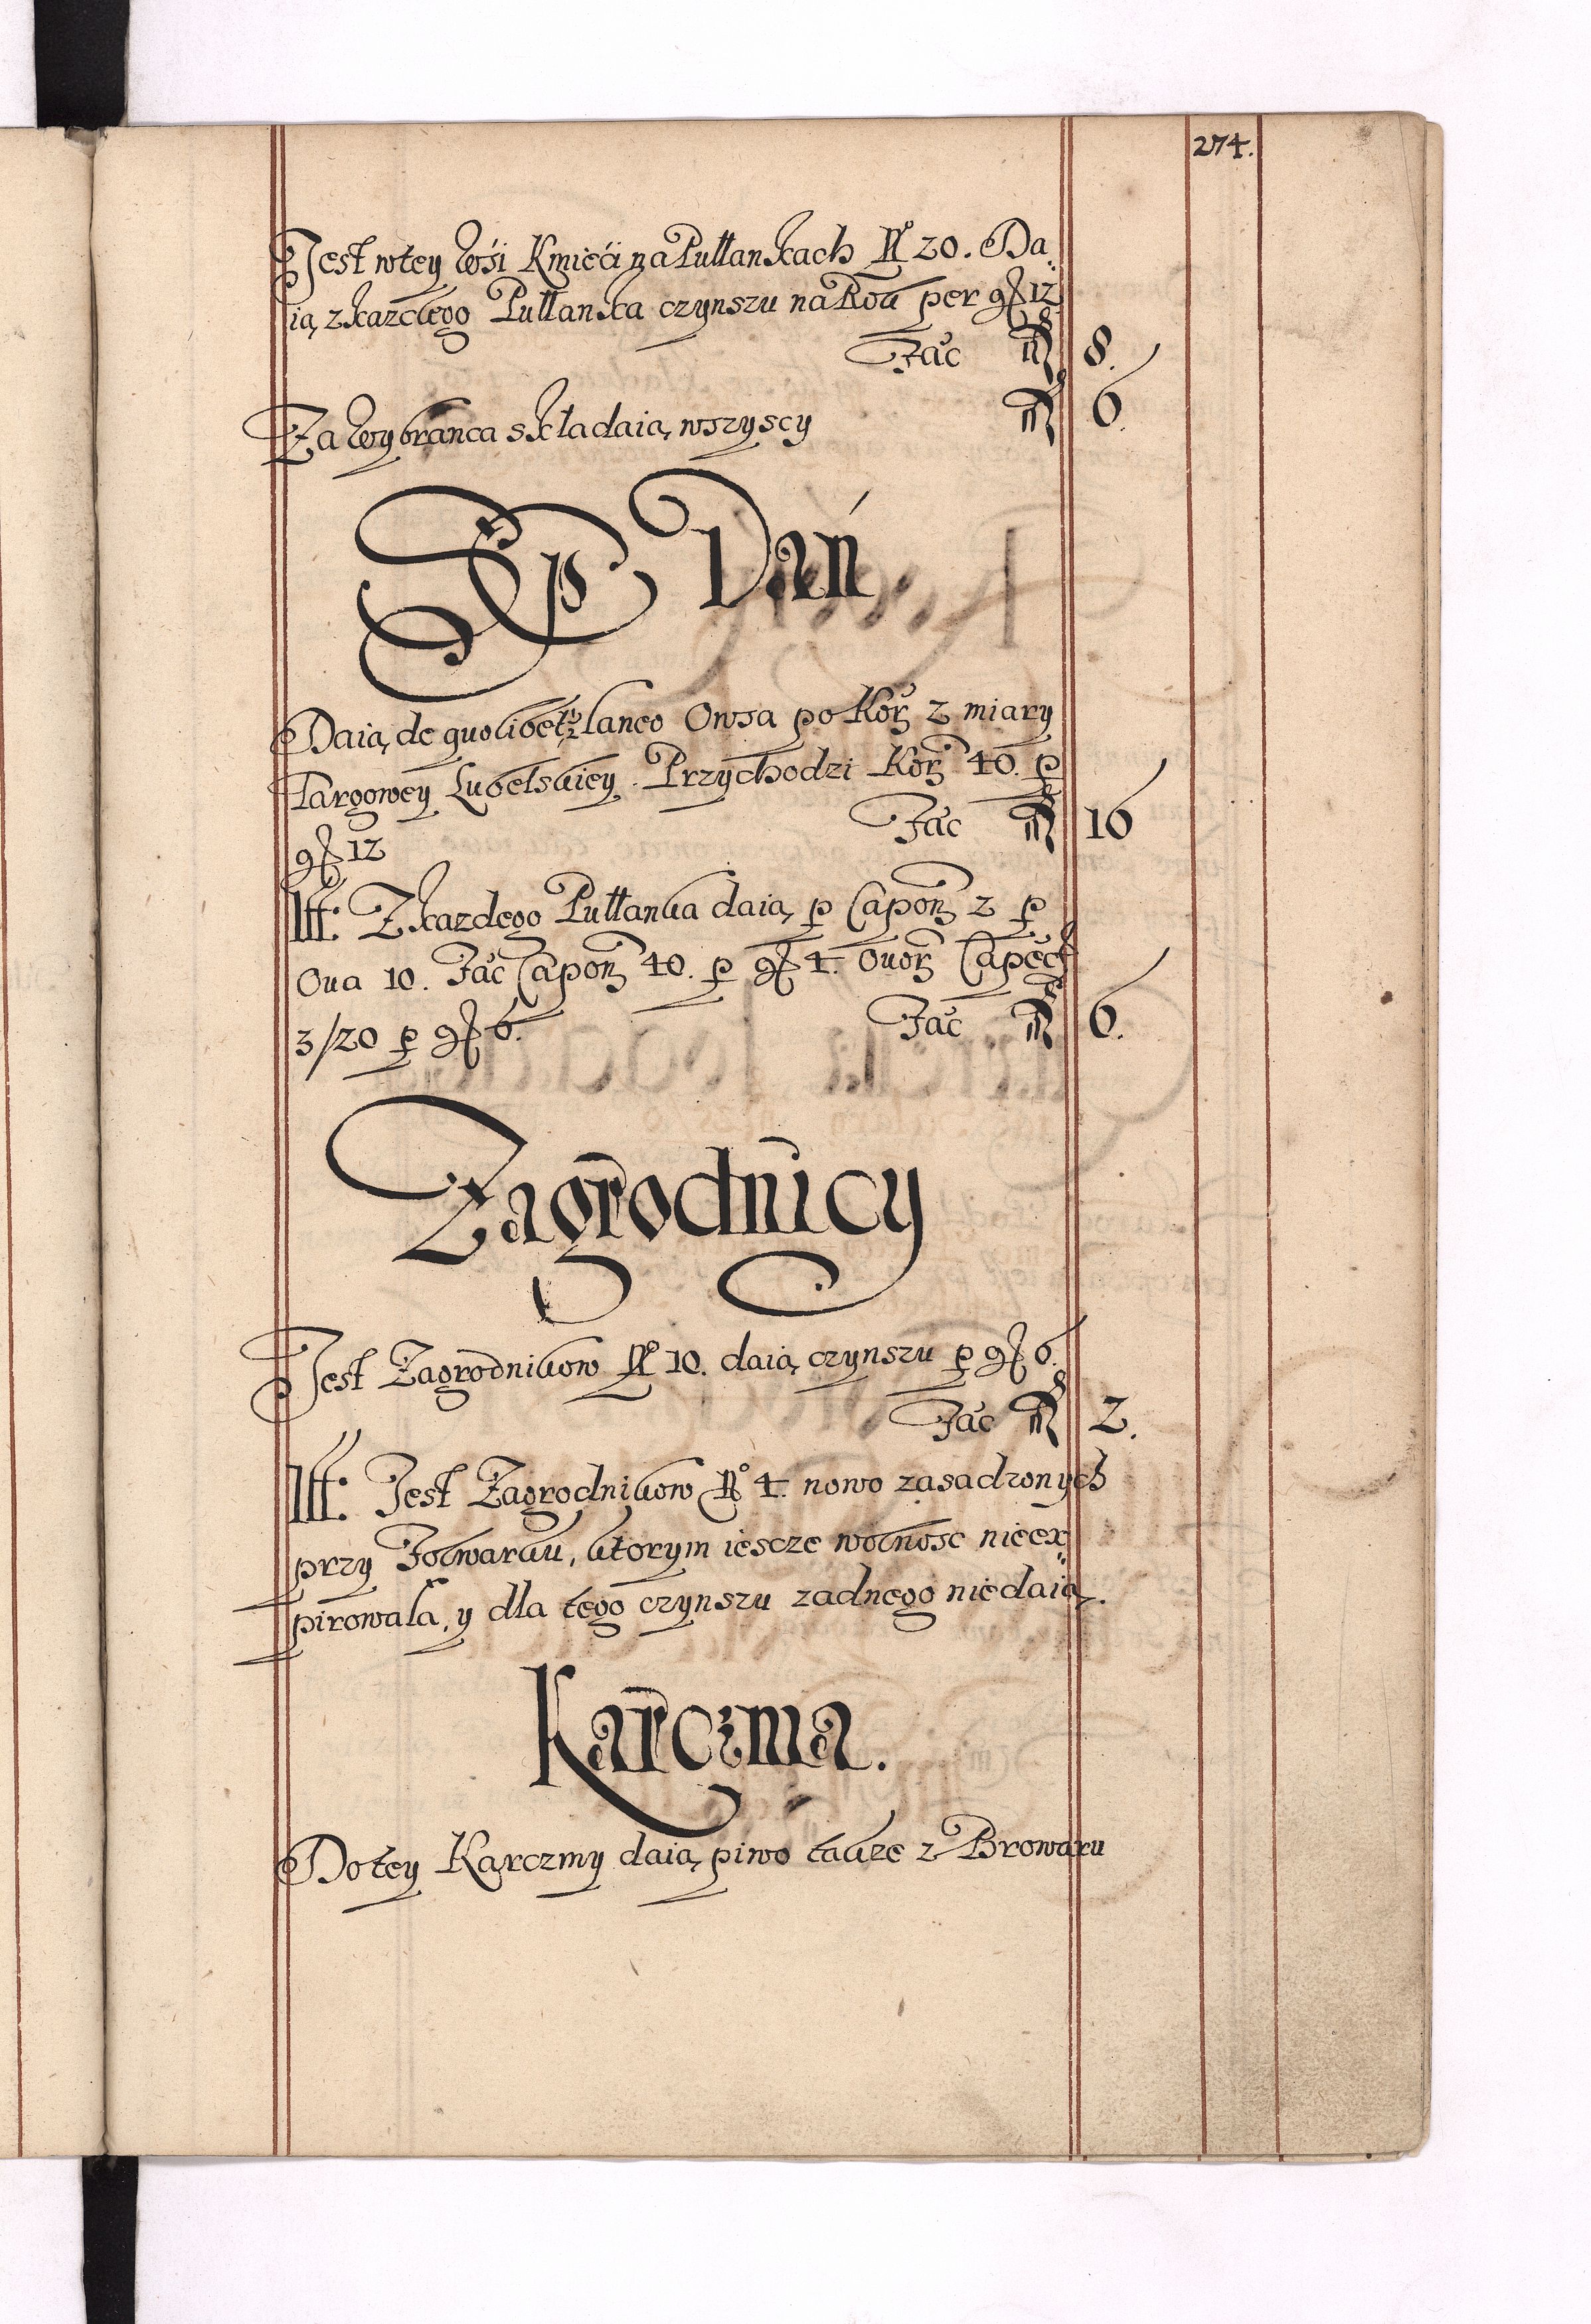 274.
Jest w tey Wśi Kmieći na Pułłankach No 20. Da„
ią z kazdego Pułłanka czynszu na Rok per g 12
Fac f 8.
Za Wybranca składaią wszyscy f 6.
Dań
Daią de quolibet ½ laneo Owsa po Korz 2 miary
Targowey Lubelskiey. Przychodzi Korz 40. p
g 12 Fac f 16
Itt: Z kazdego Pułłanka daią p Capon 2 p
Ova 10. Fac Capon 40. p g 4. Ovor Capect
3/20 p g 6. Fac f 6.
Zagrodnicy
Jest Zagrodnikow No 10. daią czynszu p g 6.
Fac f 2.
Itt: Jest Zagrodnikow No 4. nowo zasadzonych
przy Folwarku, ktorym iescze wolnosc nieex„
pirowala, y dla tego czynszu zadnego niedaią.
Karczma.
Do tey Karczmy daią piwo takze z Browaru